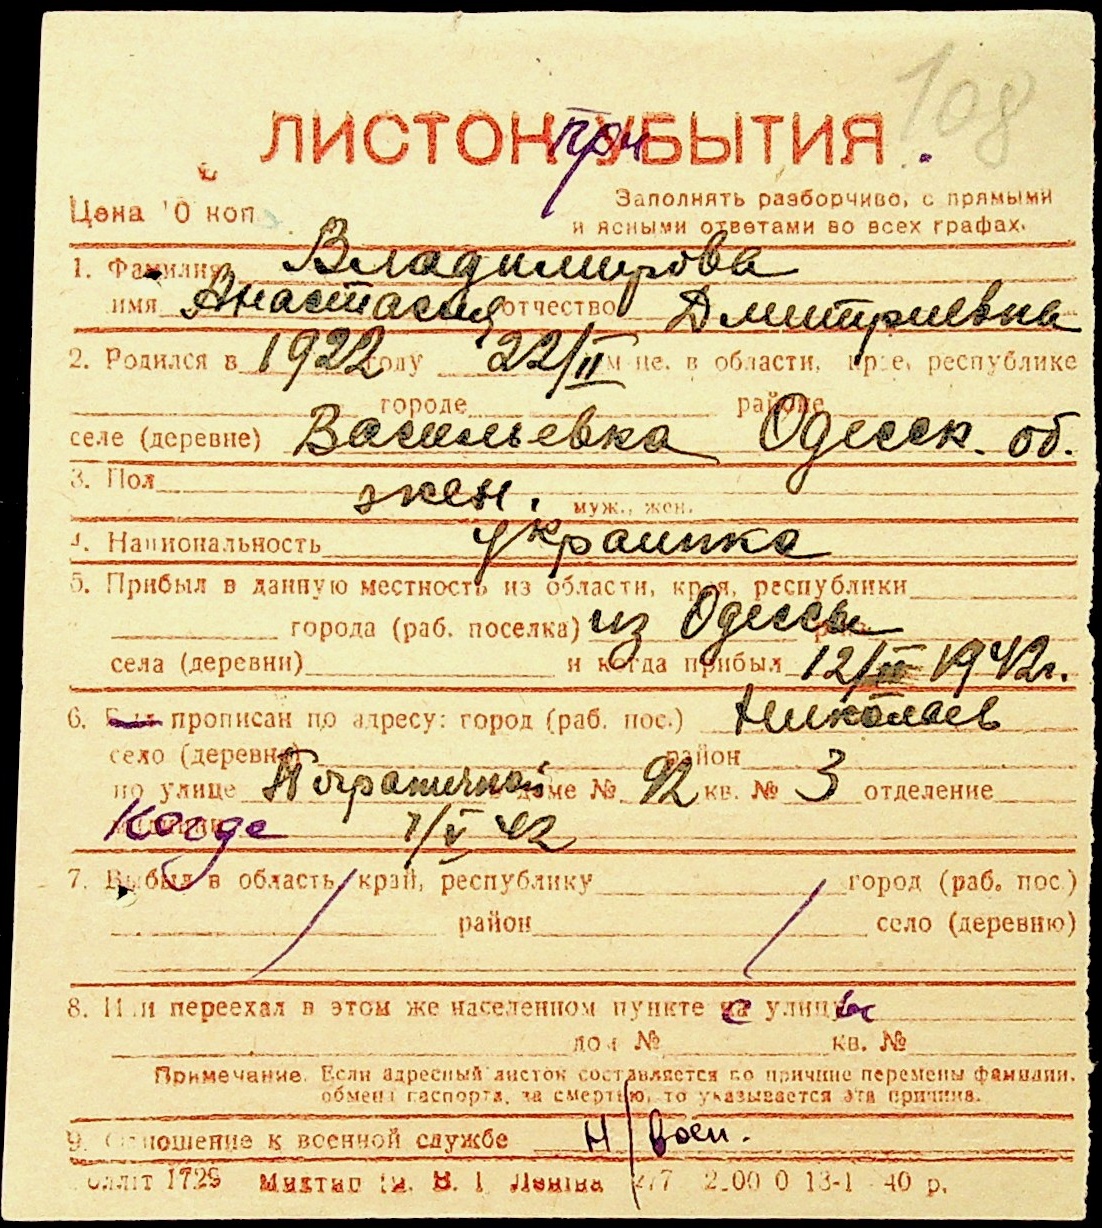 108
ЛИСТОК при УБЫТИЯ
Цена 10 коп.
Заполнять разборчиво, с прямыми
и ясными ответами во всех графах.
1. Фамилия Владимирова
имя Анастасия отчество Дмитриевна
2. Родился в 1922 году 22/II м-це, в области, крае, республике
городе районе
селе (деревне) Васильевка Одесск. об.
3. Пол жен. муж., жен.
4. Национальность украинка
5. Прибыл в данную местность из области, края, республики
города (раб. поселка) из Одессы
села (деревни) и когда прибыл 12/ 1942г.
6. Был прописан по адресу: город (раб. пос.) Николаев
село (деревня) район
по улице Пограничной доме № 92 кв. № 3 отделение
милиции Когда 7/V 42
7. Выбыл в область, край, республику город (раб. пос.)
район село (деревню)
8. Или переехал в этом же населенном пункте с улицы
дом № кв. №
Примечание. Если адресный листок составляется по причине перемены фамилии,
обмена паспорта, за смертью, то указывается эта причина.
9. Отношение к военной службе н/воен.
1729 им. В. І. Леніна 277 13-1 40 р.